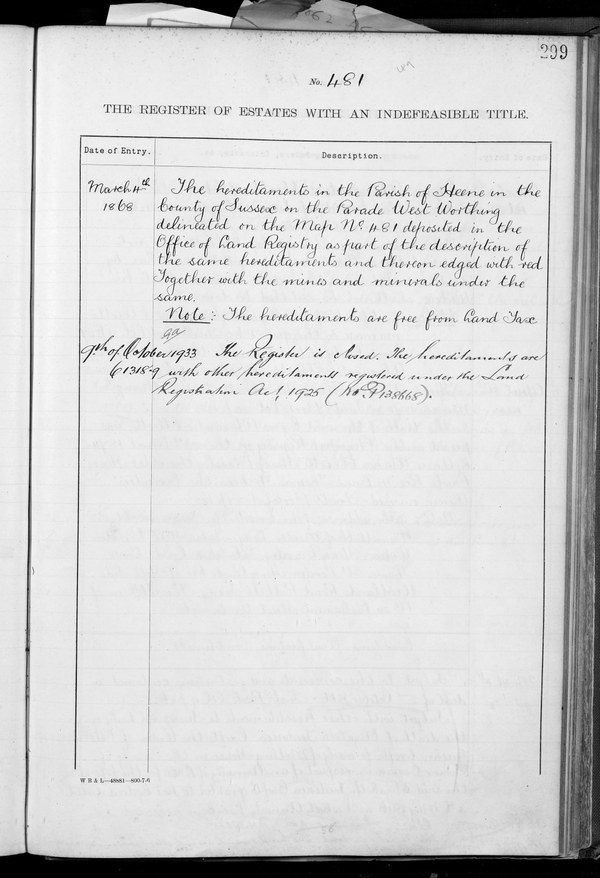 299
No. 481
THE REGISTER OF ESTATES WITH AN INDEFEASIBLE TITLE.
Date of Entry.
Description.
March 4th
1868
The hereditaments in the Parish of Heene in the
County of Sussex on the Parade West Worthing
delineated on the Map No. 481 deposited in the
Office of Land Registry as part of the description of
the same hereditaments and thereon edged with red
Together with the mines and minerals under the
same.
Note: The hereditaments are free from Land Tax
9th of October 1933 The Register is closed. The hereditaments are
61318-9 with other hereditaments registered under the Land
Registration Act, 1925 (No. P138668).
W B & L—48881—800-7-5